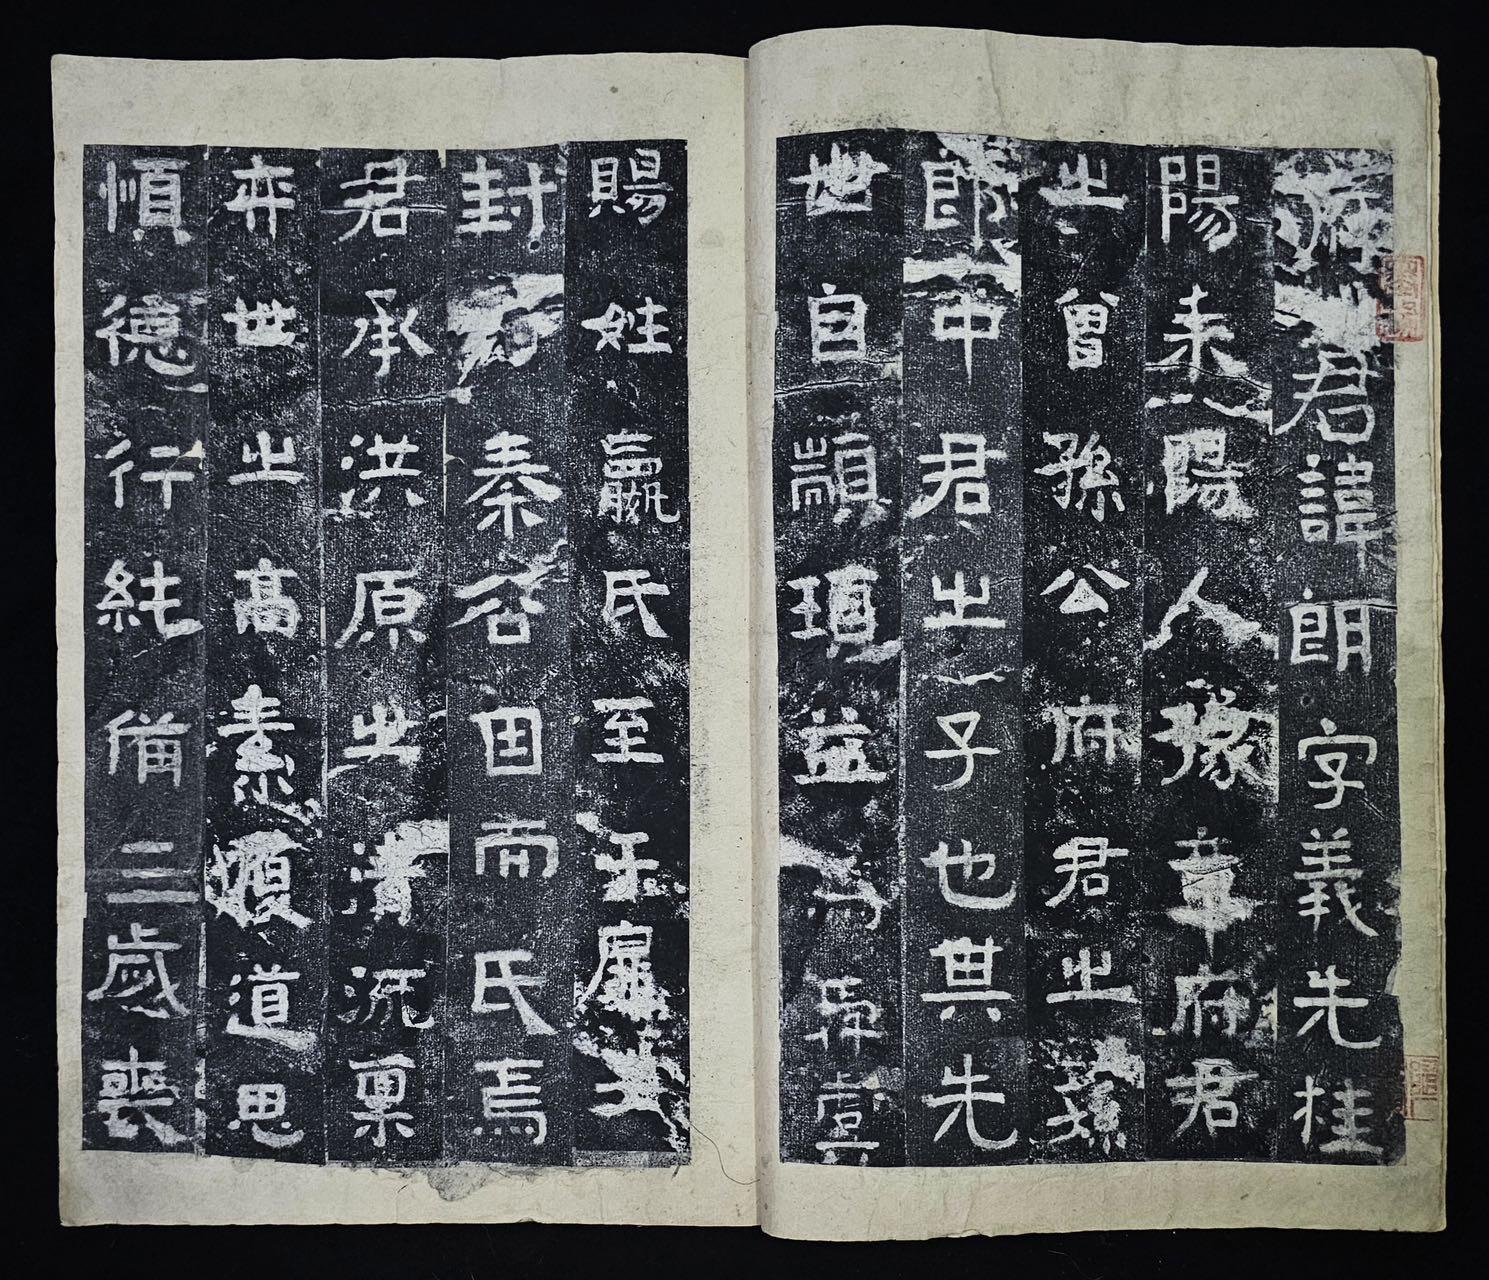 君諱朗字義先桂
陽耒陽人豫章府君
之曾孫公府君之孫
郎中君之子也其先
世自顓頊益舜
賜姓嬴氏至
封秦谷因而氏焉
君承洪原之清流稟
弈世之高道思
順德行純備三歲喪